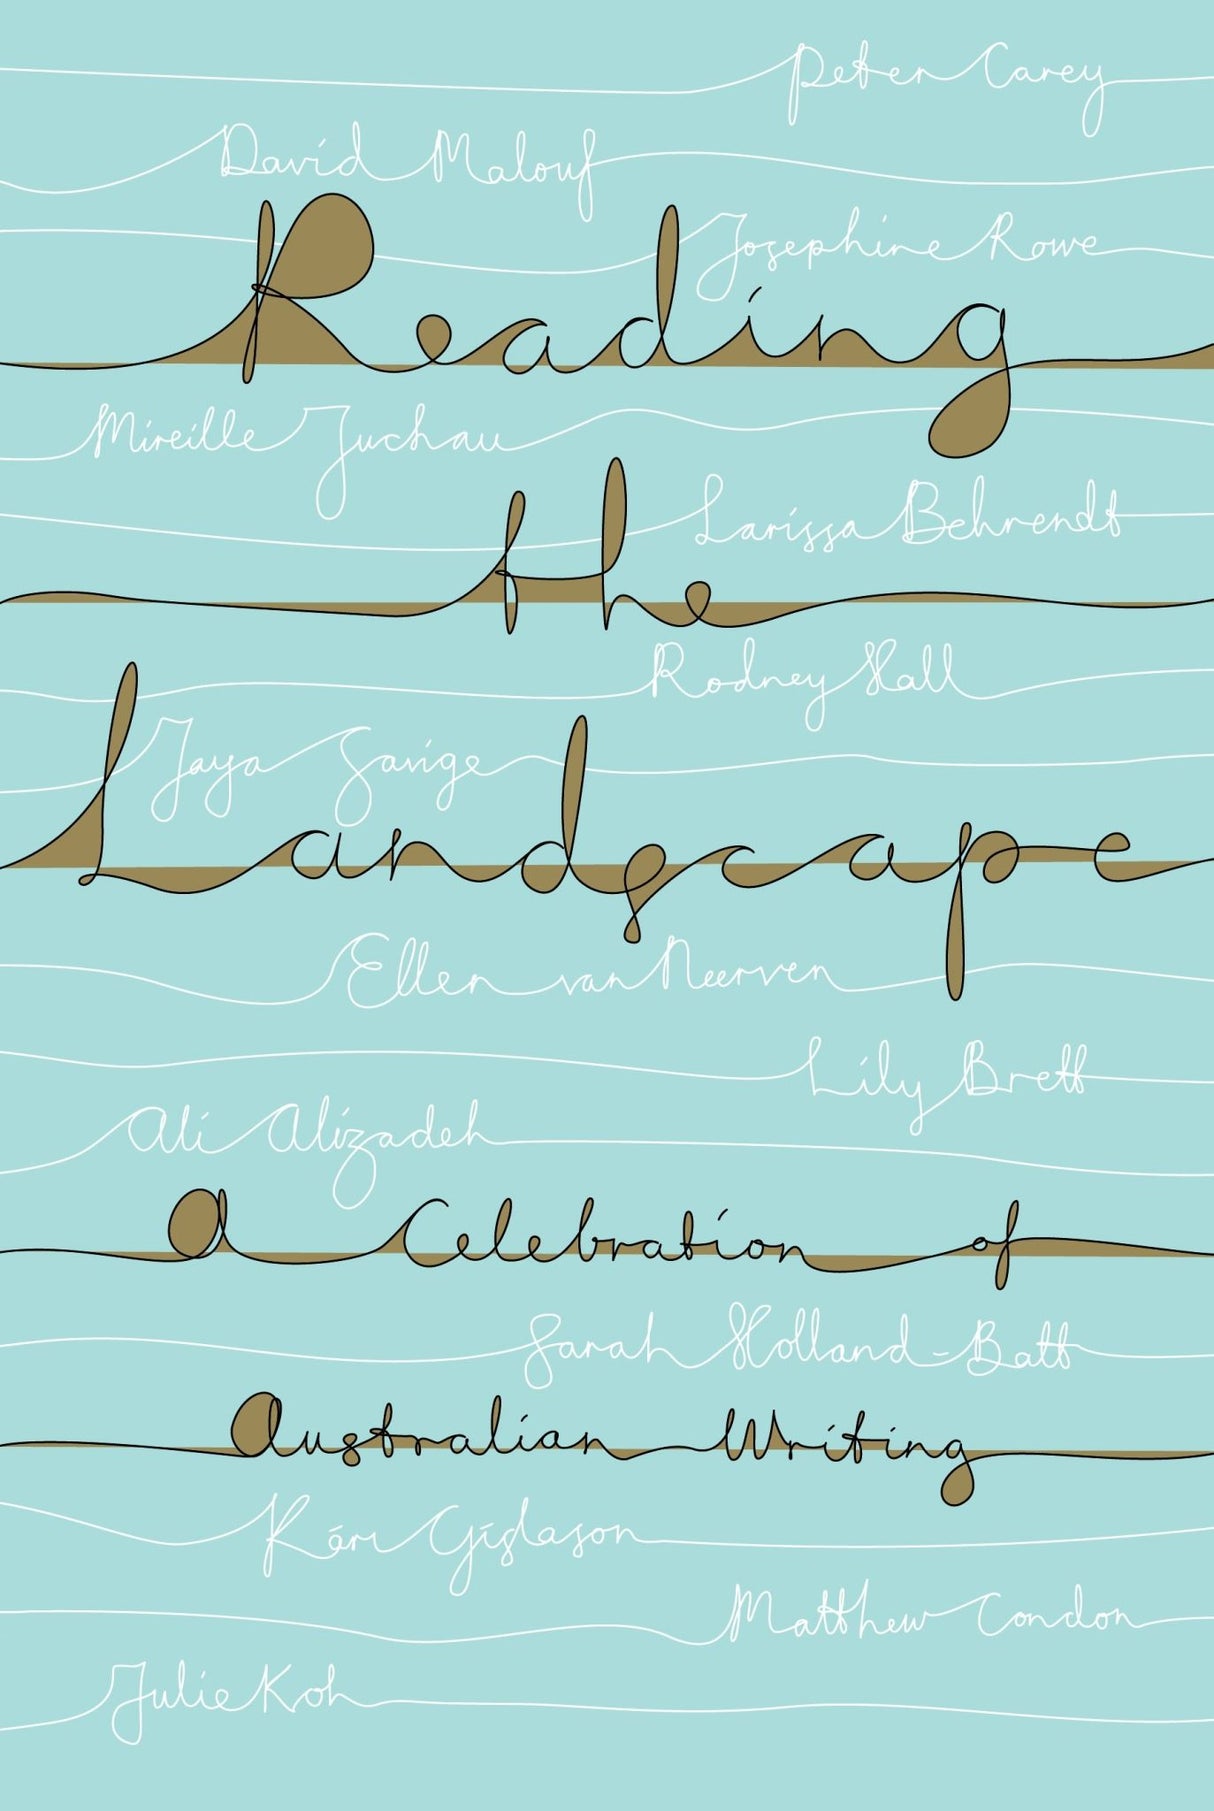 Peter Carey
David Malouf
Reading
Josephine Rowe
Mireille Juchau
the
Larissa Behrendt
Rodney Hall
Jaya Savige
Landscape
Ellen van Neerven
Lily Brett
Ali Alizadeh
A Celebration of
Sarah Holland-Batt
Australian Writing
Kári Gíslason
Matthew Condon
Julie Koh